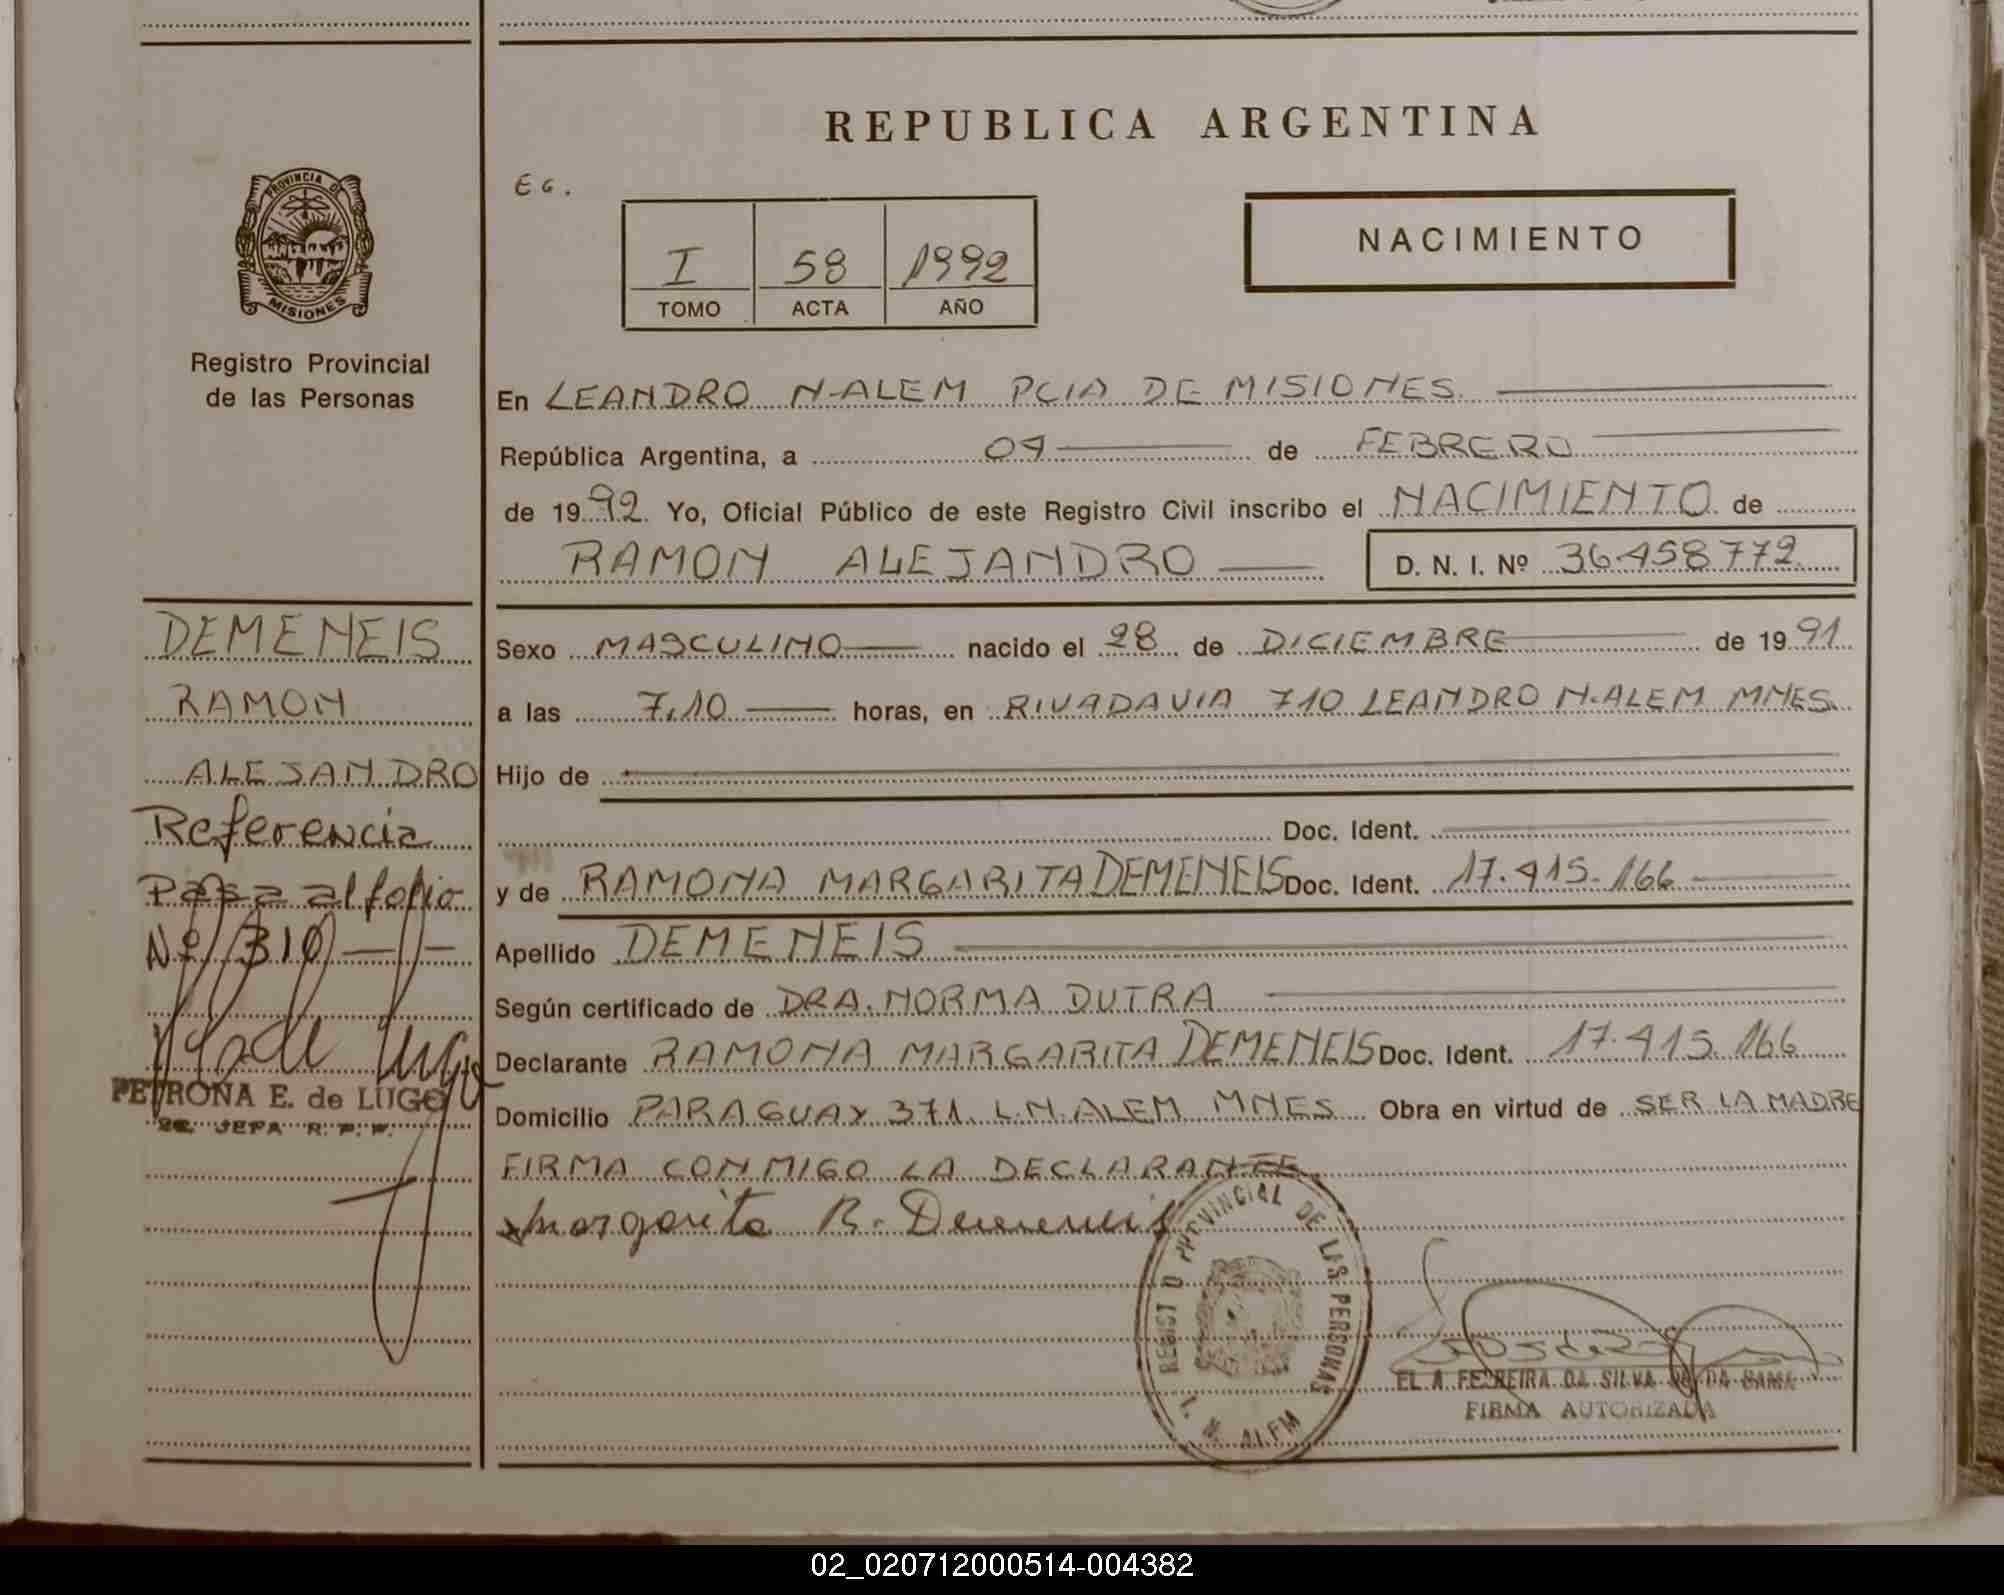 REPUBLICA ARGENTINA
PROVINCIA DE
MISIONES
Registro Provincial
de las Personas
EG.
I 58 1992
TOMO ACTA AÑO
NACIMIENTO
En LEANDRO N-ALEM PCIA DE MISIONES
República Argentina, a 04 de FEBRERO
de 1992 Yo, Oficial Público de este Registro Civil inscribo el NACIMIENTO de
RAMON ALEJANDRO D. N. I. Nº 36458772
DEMENEIS
RAMON
ALEJANDRO
Referencia
Pasa al folio
Nº 310
PETRONA E. de LUGO
2a. JEFA R. P. P.
Sexo MASCULINO nacido el 28 de DICIEMBRE de 1991
a las 7,10 horas, en RIVADAVIA 710 LEANDRO N-ALEM MNES.
Hijo de
Doc. Ident.
y de RAMONA MARGARITA DEMENEIS Doc. Ident. 17.415.166
Apellido DEMENEIS
Según certificado de DRA. NORMA DUTRA
Declarante RAMONA MARGARITA DEMENEIS Doc. Ident. 17.415.166
Domicilio PARAGUAY 371 L.N.ALEM MNES Obra en virtud de SER LA MADRE
FIRMA CONMIGO LA DECLARANTE
Margarita R. Demeneis
REGISTRO PROVINCIAL DE LAS PERSONAS
L. N. ALEM
FERREIRA DA SILVA DE DA GAMA
FIRMA AUTORIZADA
02_020712000514-004382